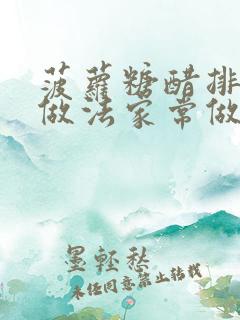 菠蘿糖醋排
做法家常做
墨輕愁
未经同意禁止转载